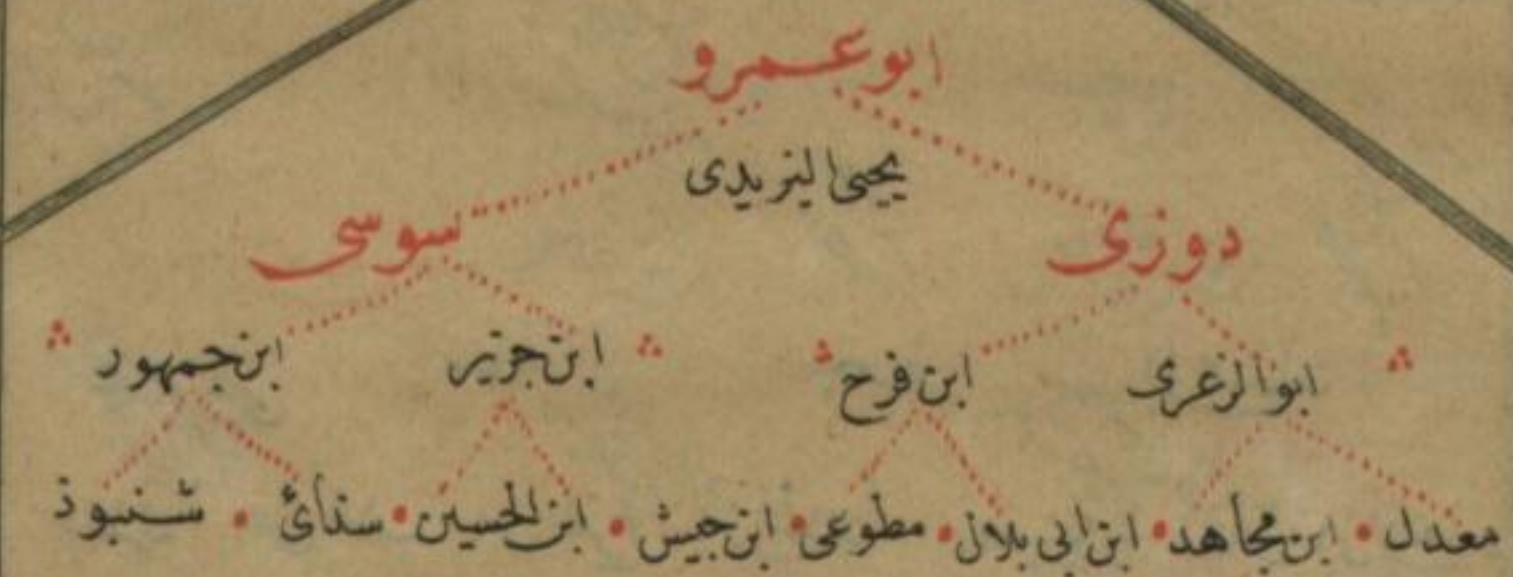 ابو عمرو
يحيى اليزيدى
دوزى سوسى
ابو الزعرى ابن فرح ابن جرير ابن جمهور
معدل ابن مجاهد ابن ابى بلال مطوعى ابن حبش ابن الحسين شنبوذ